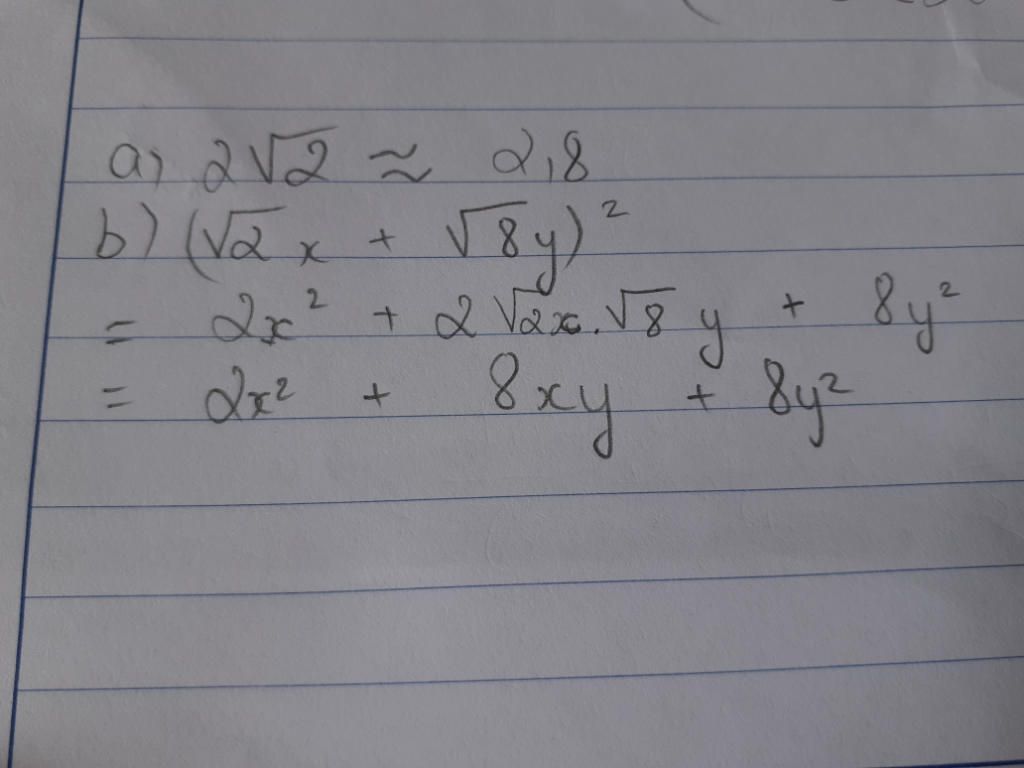 a) 2√2 ≈ 2,8
b) (√2 x + √8y)²
= 2x² + 2√2x.√8 y + 8y²
= 2x² + 8xy + 8y²